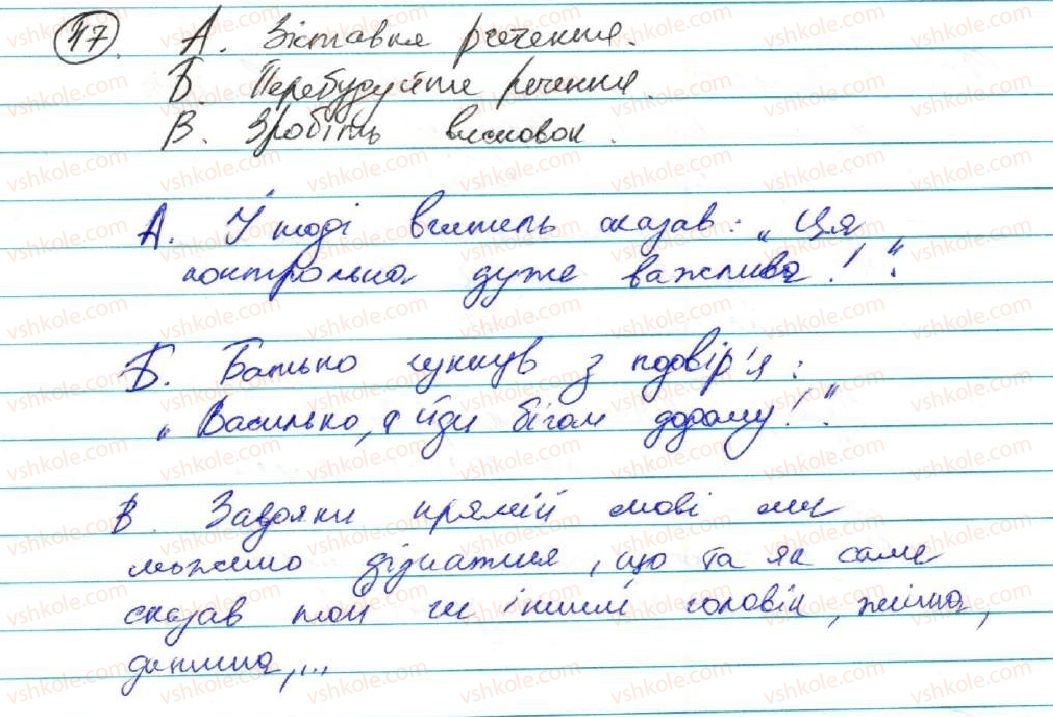 47. А. Зіставте речення.
Б. Перебудуйте речення.
В. Зробіть висновок.
А. У тоді вчитель сказав: „Ця
контрольна дуже важлива!“.
Б. Батько гукнув з подвір'я:
„Василько, а йди бігом додому!“.
В. Завдяки прямій мові ми
можемо дізнатися, що та як саме
сказав той чи інший чоловік, жінка,
дитина,...
vshkole.com